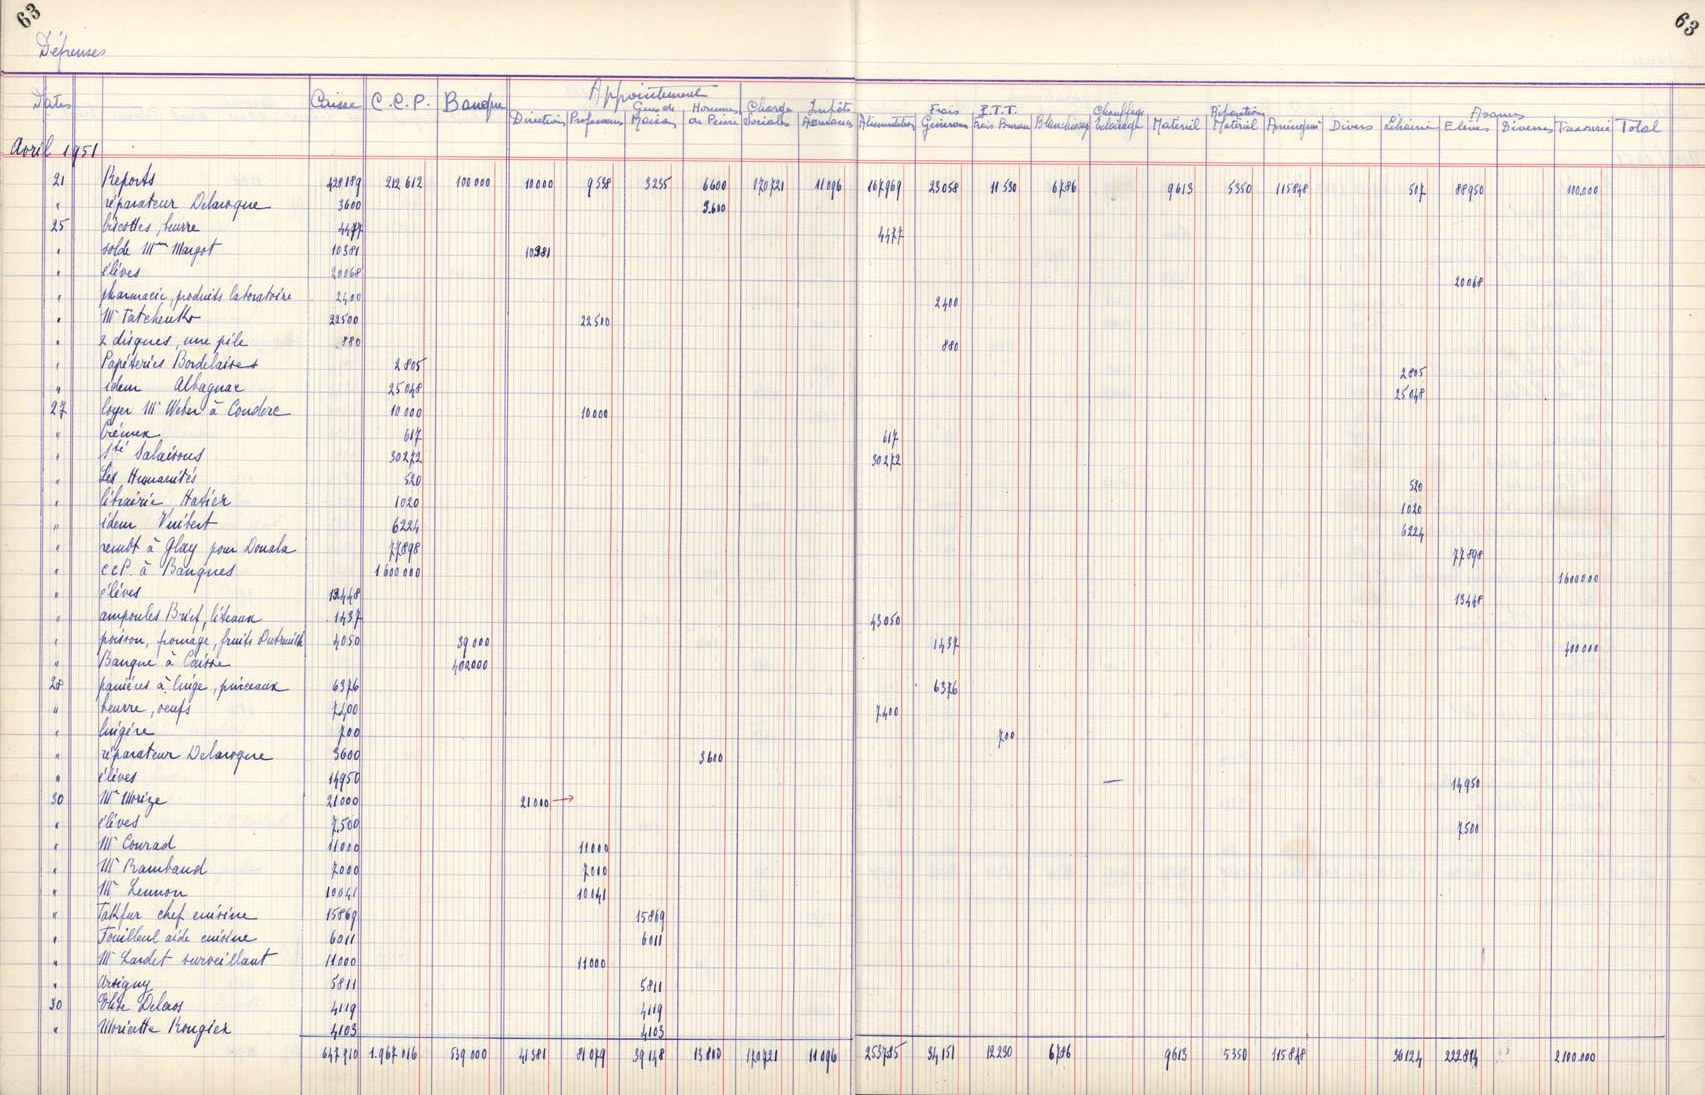 63 63
Dépenses
Dates Caisse C.C.P. Banque Appointement Direction Professeurs Gens de Maison Hommes de Peine Charges Sociales Impôts Assurances Alimentation Frais Généraux P.T.T. Frais Bureau Blanchissage Chauffage éclairage Matériel Réparations Matériel Divers Librairie Avances Elèves Diverses Trésorerie Total
Avril 1951
21 Reports 428189 212612 100000 10000 9538 3255 6600 170721 11096 167969 23058 11530 6786 9613 5350 115848 507 88950 100.000
" réparateur Delaroque 3600 3.600
25 biscottes, beurre 4477 4477
" solde Mme Margot 10381 10381
" élèves 20068 20068
" pharmacie, produits laboratoire 2400 2400
" Mr Tatchenko 22500 22510
" 2 disques, une pile 880 880
" Papéteries Bordelaises 2805 2805
" idem Albagnac 25048 25048
27 loyer Mr Weber à Couderc 10000 10000
" Crémex 617 617
" Sté Salaisons 30272 30272
" Les Humanités 520 520
" librairie Hatier 1020 1020
" idem Vuibert 6224 6224
" rembt à Glay pour Douala 77898 77898
" CCP. à Banques 1600000 1600000
" élèves 13448 13448
" ampoules Brief, liteaux 1437 43050
" poisson, fromage, fruits Dubreuilh 4050 39000 1437 400000
" Banque à Caisse 400000
28 panières à linge, pinceaux 6376 6376
" beurre, oeufs 7400 7400
" lingère 700 700
" réparateur Delaroque 3600 3600
" élèves 14950 — 14950
30 Mr Morize 21000 21000 →
" élèves 7500 7500
" Mr Conrad 11000 11000
" Mr Rambaud 7000 7000
" Mr Lennon 10041 10041
" Takfur chef cuisine 15869 15869
" Fouilleul aide cuisine 6011 6011
" Mr Lardet surveillant 11000 11000
" Arsigny 5811 5811
30 Elise Delcros 4119 4119
" Mariette Rougier 4103 4103
647910 1.967016 539000 41381 81079 39148 13800 170721 11096 253785 34151 12230 6786 9613 5350 115848 36124 222814 2100.000